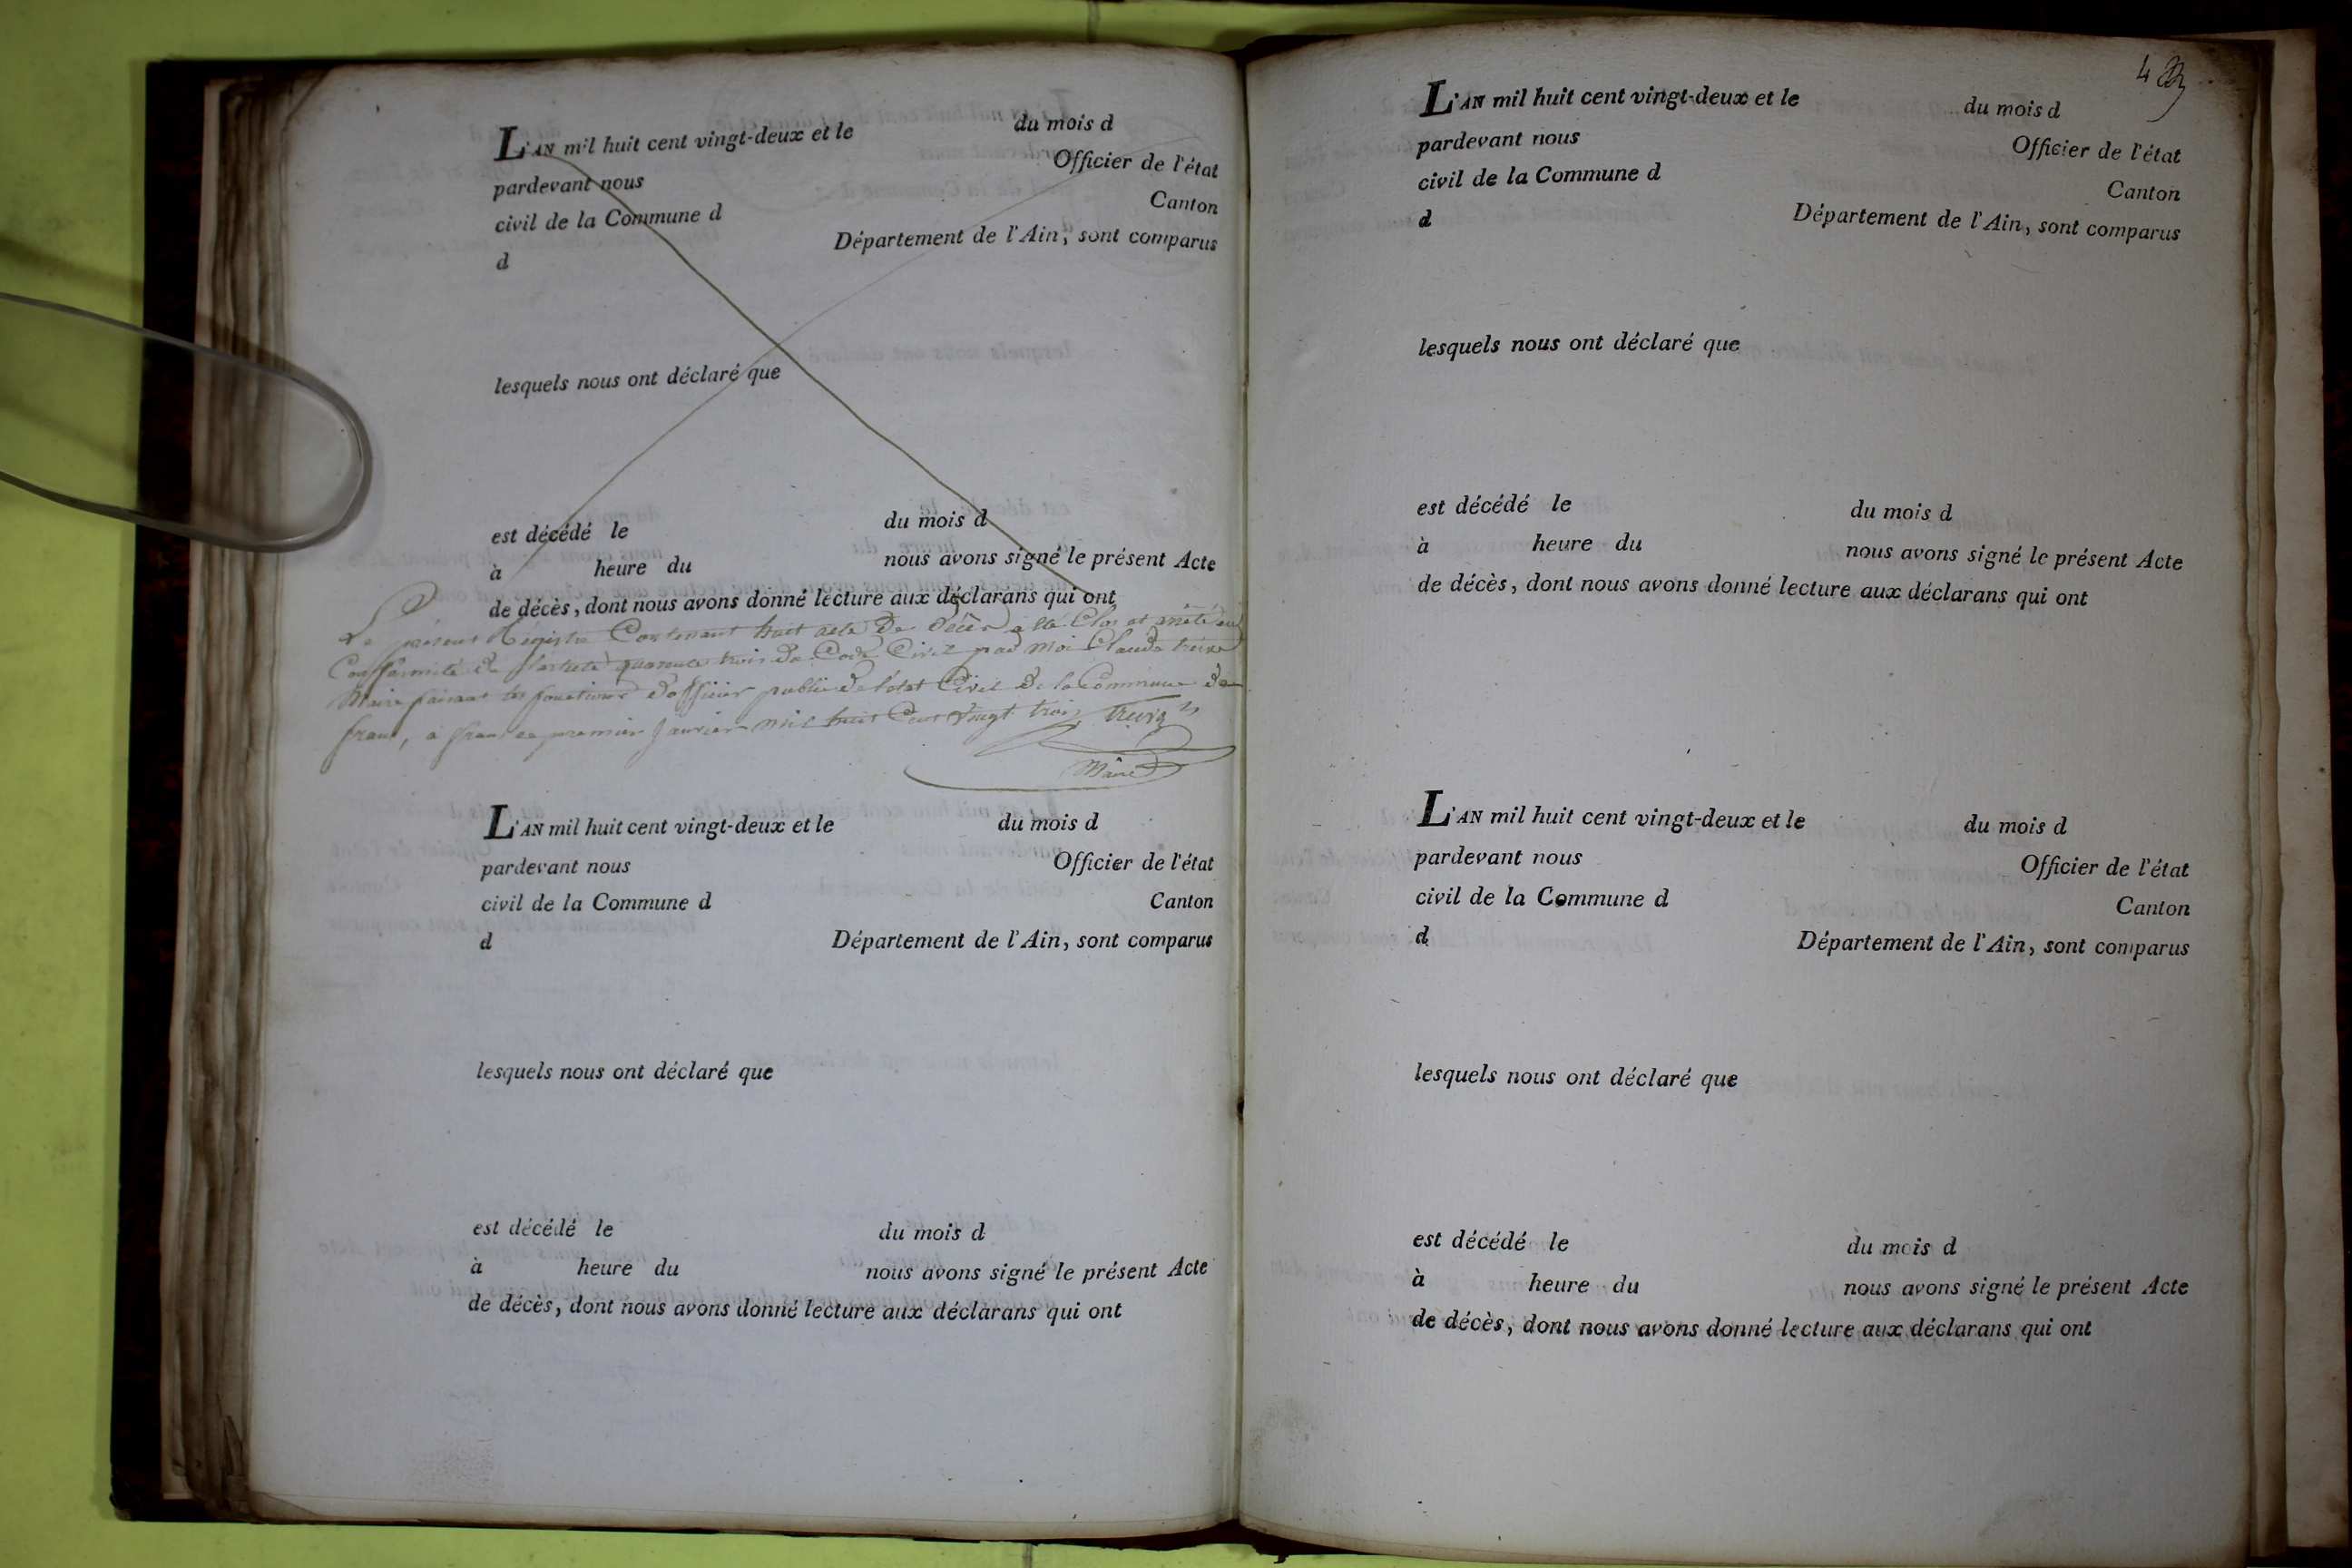 L'AN mil huit cent vingt-deux et le du mois d
pardevant nous Officier de l'état
civil de la Commune d Canton
d Département de l'Ain, sont comparus
lesquels nous ont déclaré que
est décédé le du mois d
à heure du nous avons signé le présent Acte
de décès, dont nous avons donné lecture aux déclarans qui ont
Le présent Registre Contenant huit acte De Décès a été Clos et arrêté en
Conformité de quarante trois du Code Civil par Moi Claude
Maire faisant les fonctions d'officier public de l'état Civil De la Commune De
frans, a frans le premier Janvier mil huit Cent vingt trois
Maire
L'AN mil huit cent vingt-deux et le du mois d
pardevant nous Officier de l'état
civil de la Commune d Canton
d Département de l'Ain, sont comparus
lesquels nous ont déclaré que
est décédé le du mois d
à heure du nous avons signé le présent Acte
de décès, dont nous avons donné lecture aux déclarans qui ont
4
L'AN mil huit cent vingt-deux et le du mois d
pardevant nous Officier de l'état
civil de la Commune d Canton
d Département de l'Ain, sont comparus
lesquels nous ont déclaré que
est décédé le du mois d
à heure du nous avons signé le présent Acte
de décès, dont nous avons donné lecture aux déclarans qui ont
L'AN mil huit cent vingt-deux et le du mois d
pardevant nous Officier de l'état
civil de la Commune d Canton
d Département de l'Ain, sont comparus
lesquels nous ont déclaré que
est décédé le du mois d
à heure du nous avons signé le présent Acte
de décès, dont nous avons donné lecture aux déclarans qui ont